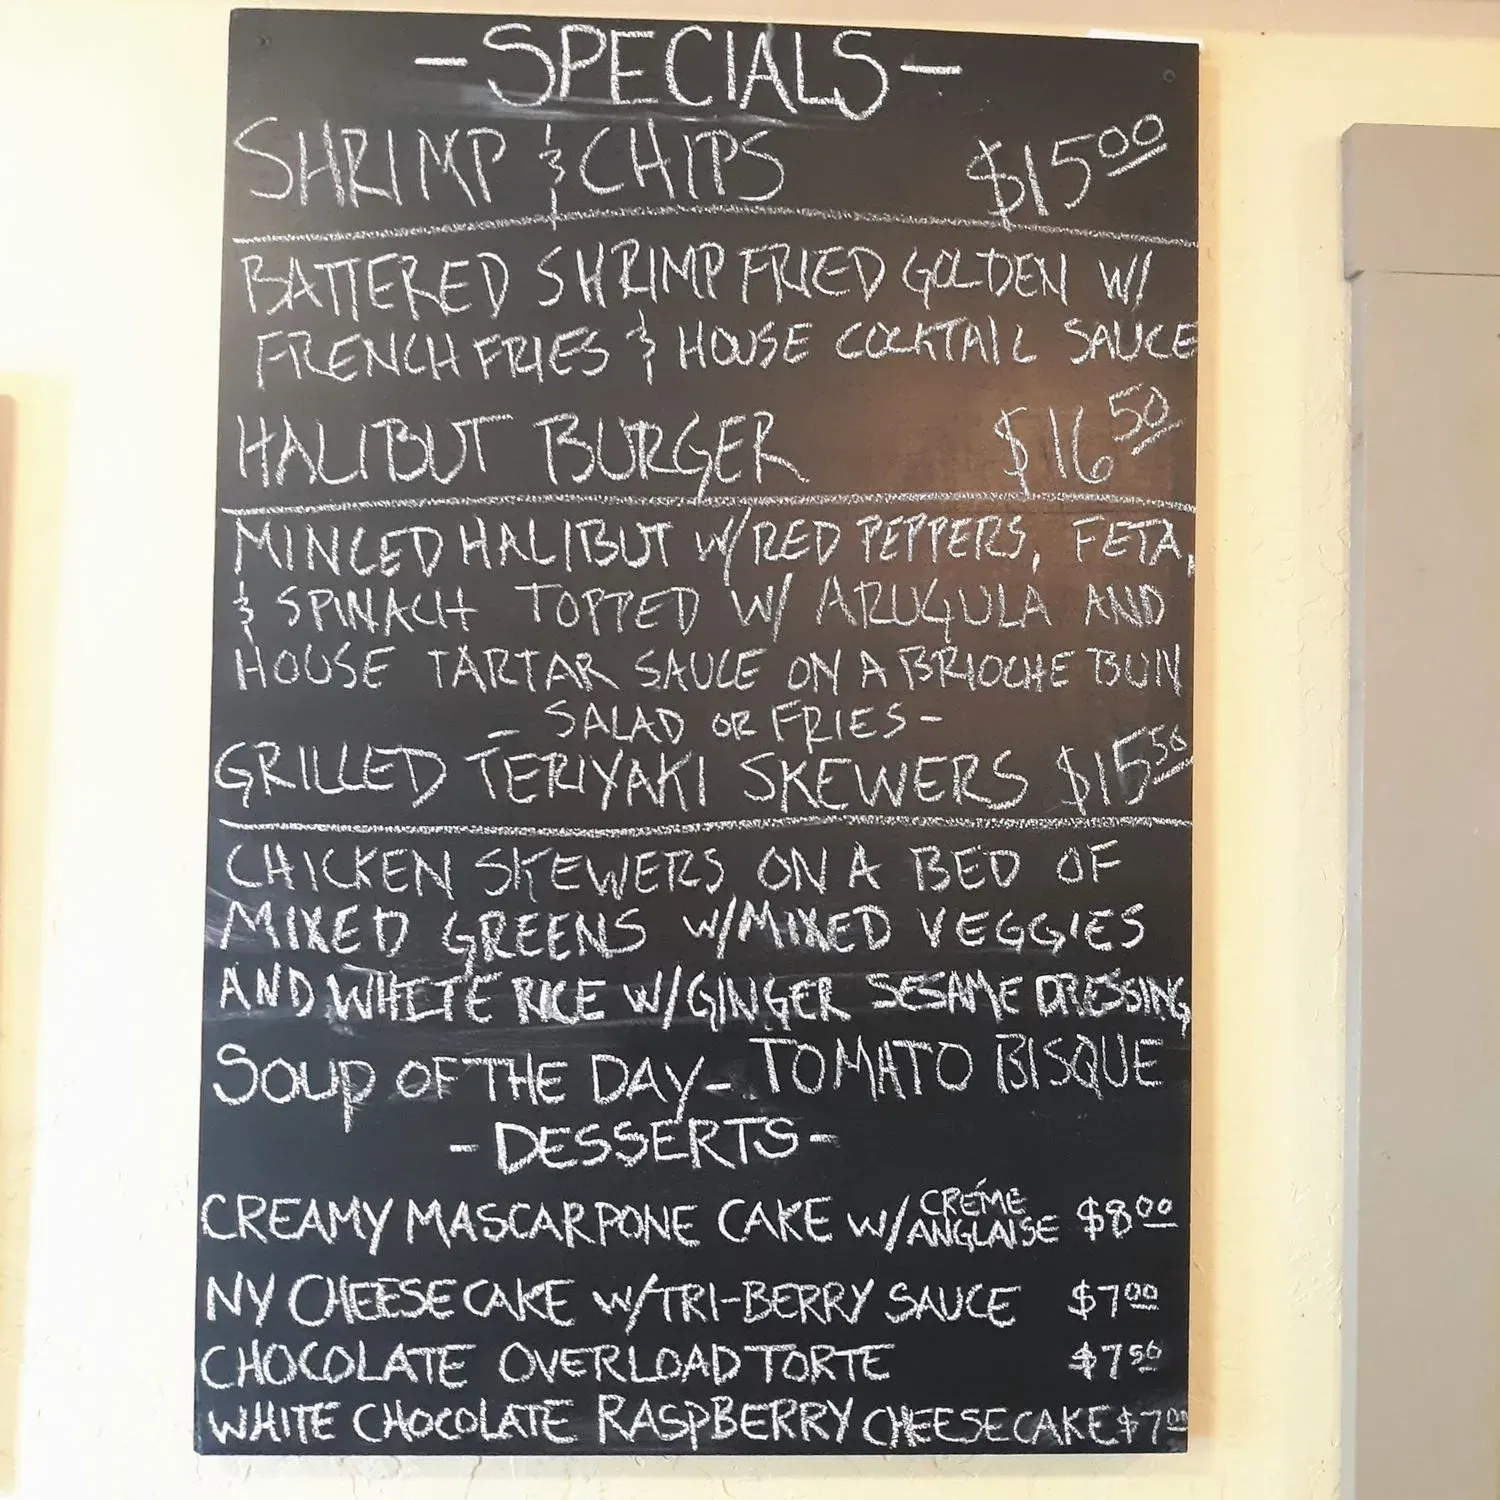 - SPECIALS -
SHRIMP & CHIPS $15.00
BATTERED SHRIMP FRIED GOLDEN W/
FRENCH FRIES & HOUSE COCKTAIL SAUCE
HALIBUT BURGER $16.50
MINCED HALIBUT W/ RED PEPPERS, FETA,
& SPINACH TOPPED W/ ARUGULA AND
HOUSE TARTAR SAUCE ON A BRIOCHE BUN
- SALAD OR FRIES -
GRILLED TERIYAKI SKEWERS $15.50
CHICKEN SKEWERS ON A BED OF
MIXED GREENS W/ MIXED VEGGIES
AND WHITE RICE W/ GINGER SESAME DRESSING
SOUP OF THE DAY - TOMATO BISQUE
- DESSERTS -
CREAMY MASCARPONE CAKE W/ CRÉME ANGLAISE $8.00
NY CHEESECAKE W/ TRI-BERRY SAUCE $7.00
CHOCOLATE OVERLOAD TORTE $7.50
WHITE CHOCOLATE RASPBERRY CHEESECAKE $7.00